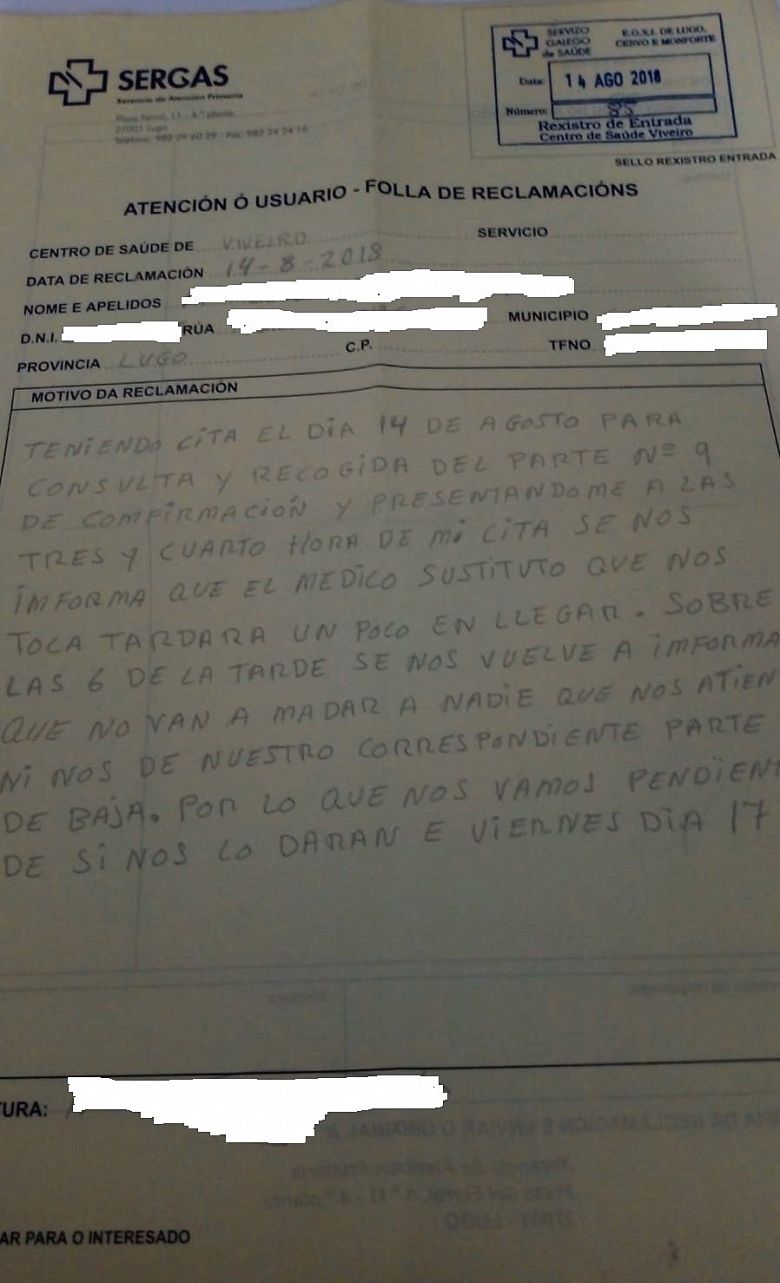 SERGAS
Xerencia de Atención Primaria
27001 Lugo
SERVIZO
GALEGO
de SAÚDE
E.O.X.I. DE LUGO,
CERVO E MONFORTE
Data: 14 AGO 2018
Número: 85
Rexistro de Entrada
Centro de Saúde Viveiro
SELLO REXISTRO ENTRADA
ATENCIÓN Ó USUARIO - FOLLA DE RECLAMACIÓNS
CENTRO DE SAÚDE DE VIVEIRO SERVICIO
DATA DE RECLAMACIÓN 14-8-2018
NOME E APELIDOS
D.N.I. RÚA MUNICIPIO
PROVINCIA LUGO C.P. TFNO
MOTIVO DA RECLAMACIÓN
TENIENDO CITA EL DIA 14 DE AGOSTO PARA
CONSULTA Y RECOGIDA DEL PARTE Nº 9
DE COMFIRMACIÓN Y PRESENTANDOME A LAS
TRES Y CUARTO HORA DE Mi CITA SE NOS
IMFORMA QUE EL MEDICO SUSTITUTO QUE NOS
TOCA TARDARA UN POCO EN LLEGAR. SOBRE
LAS 6 DE LA TARDE SE NOS VUELVE A IMFORMA
QUE NO VAN A MADAR A NADIE QUE NOS ATIEN
NI NOS DE NUESTRO CORRESPONDIENTE PARTE
DE BAJA. POR LO QUE NOS VAMOS PENDIENT
DE SI NOS LO DARAN E VIERNES DIA 17
TURA:
AR PARA O INTERESADO